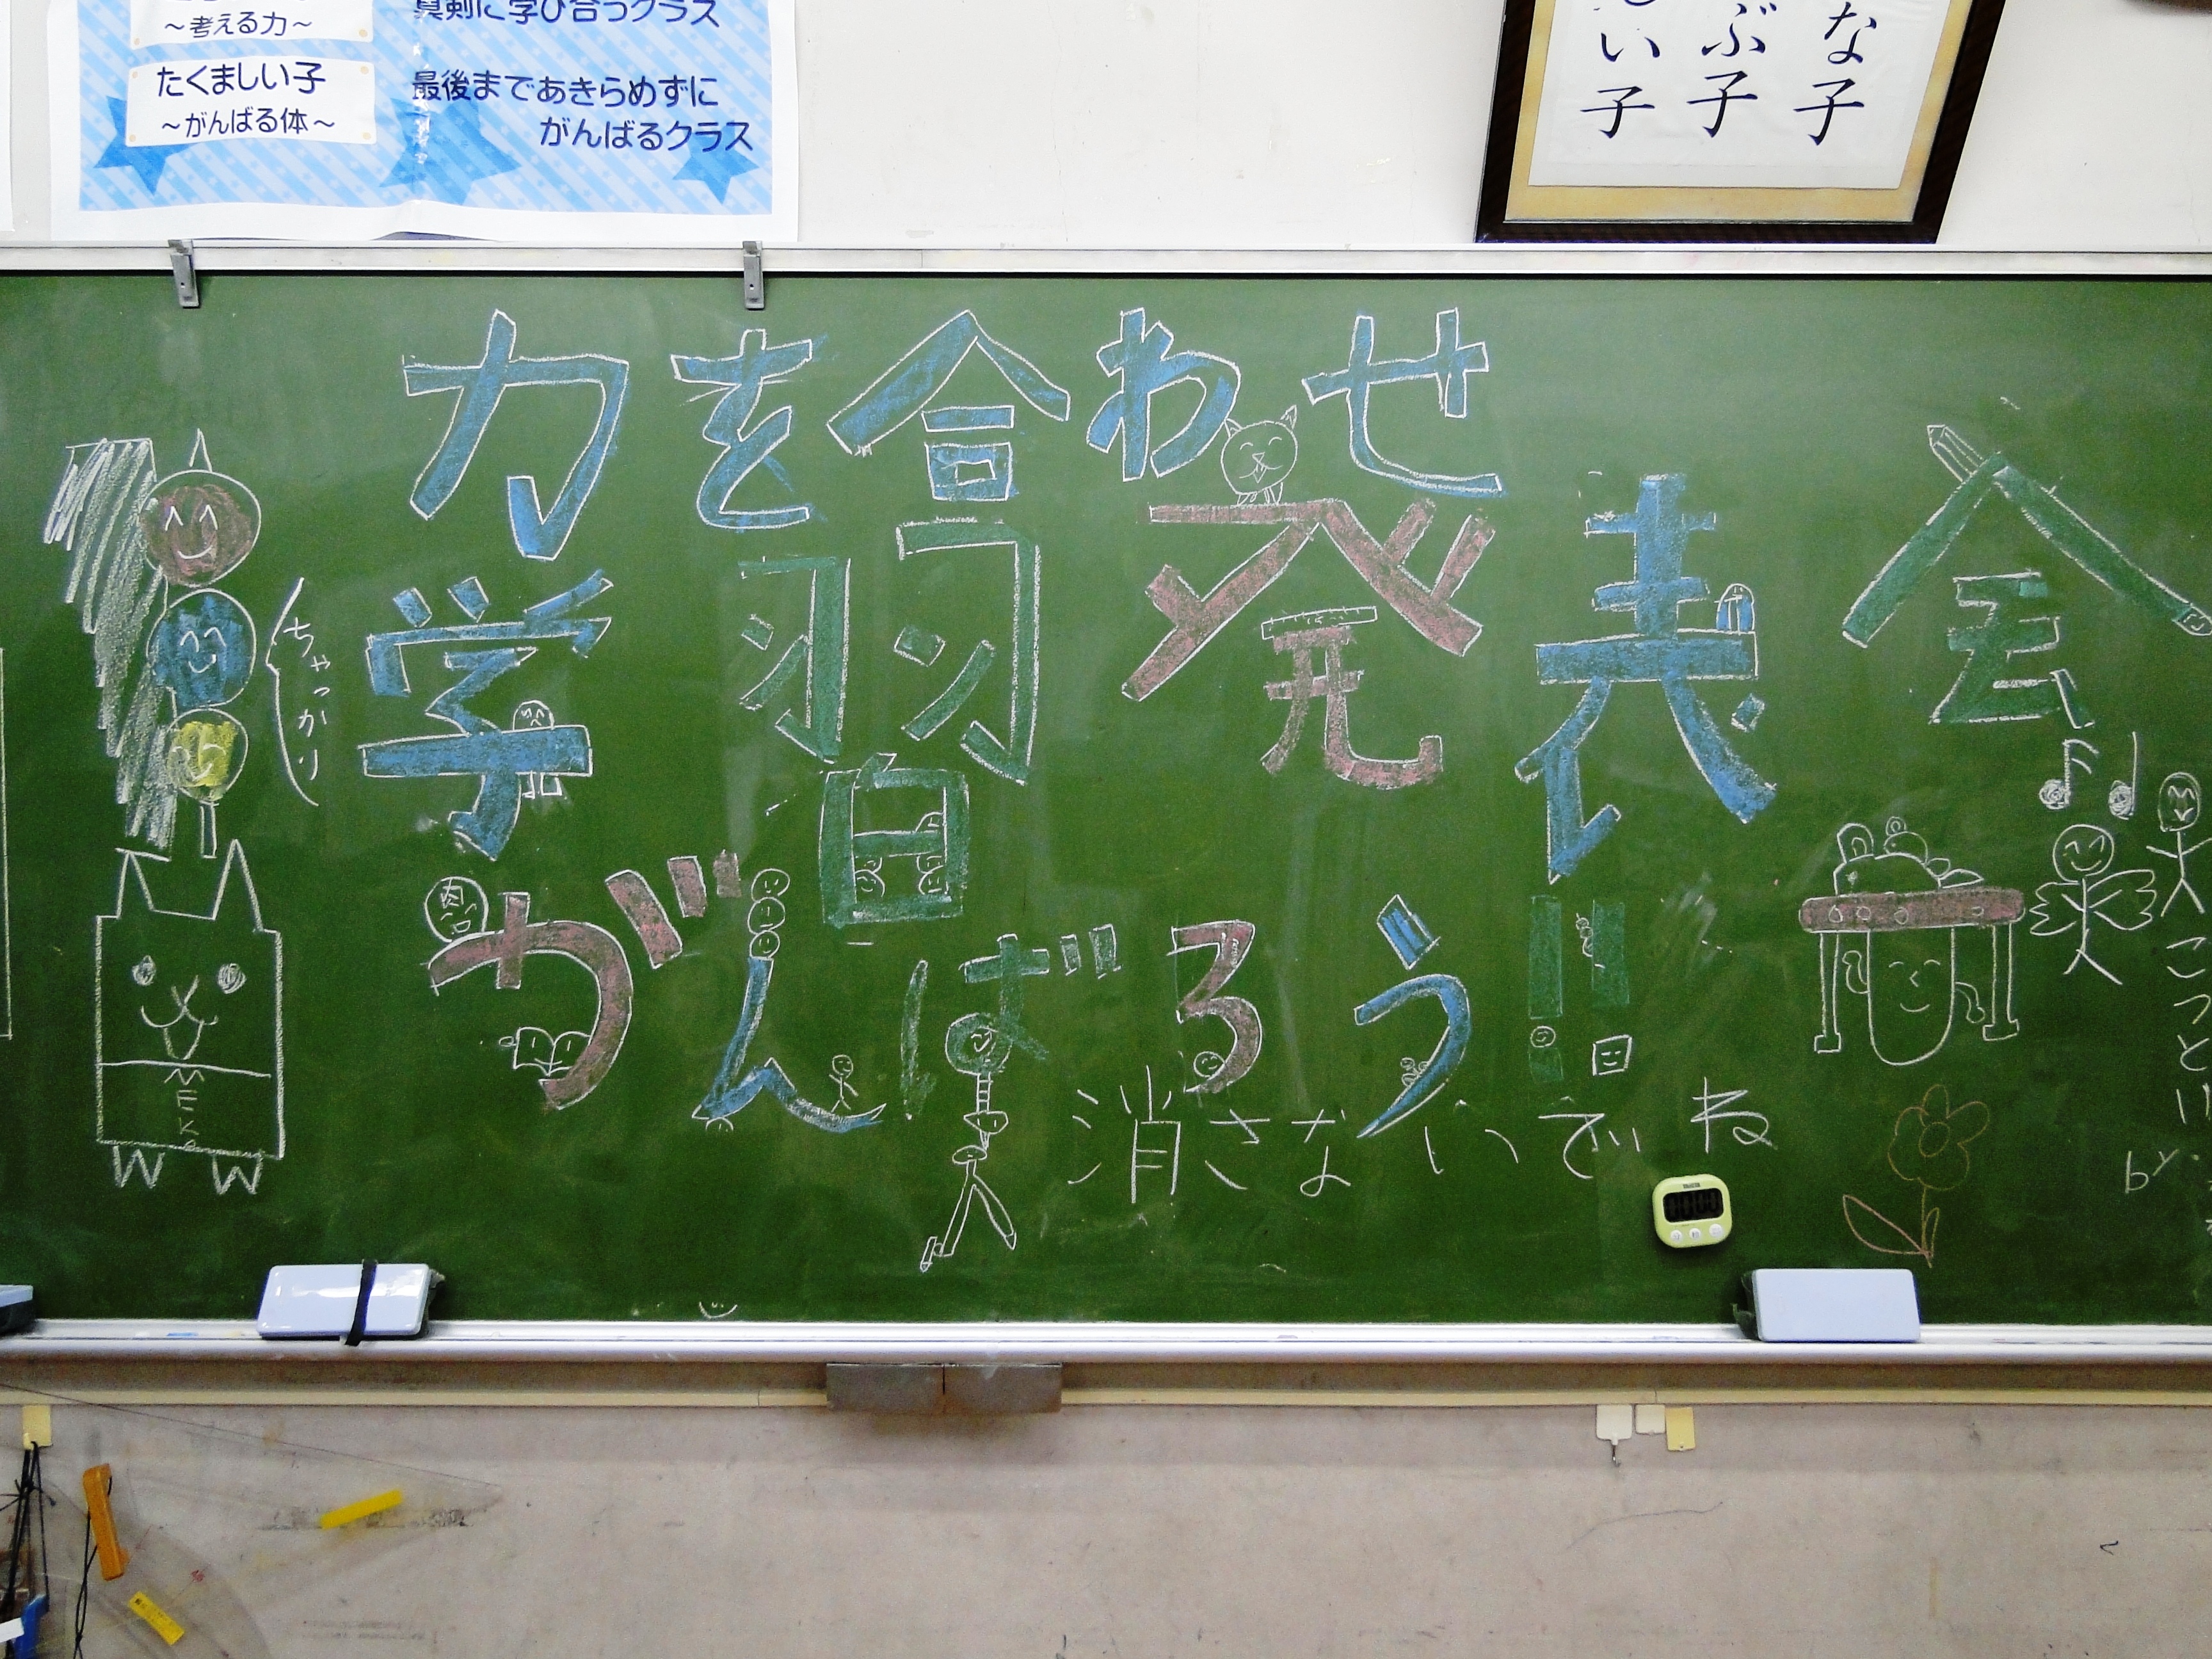 ～考える力～
たくましい子
～がんばる体～
真剣に学び合うクラス
最後まであきらめずに
がんばるクラス
な子
ぶ子
い子
力を合わせ
学習発表会
がんばろう!!
消さないでね
ちゃっかり
MEKA
こっとり
by.